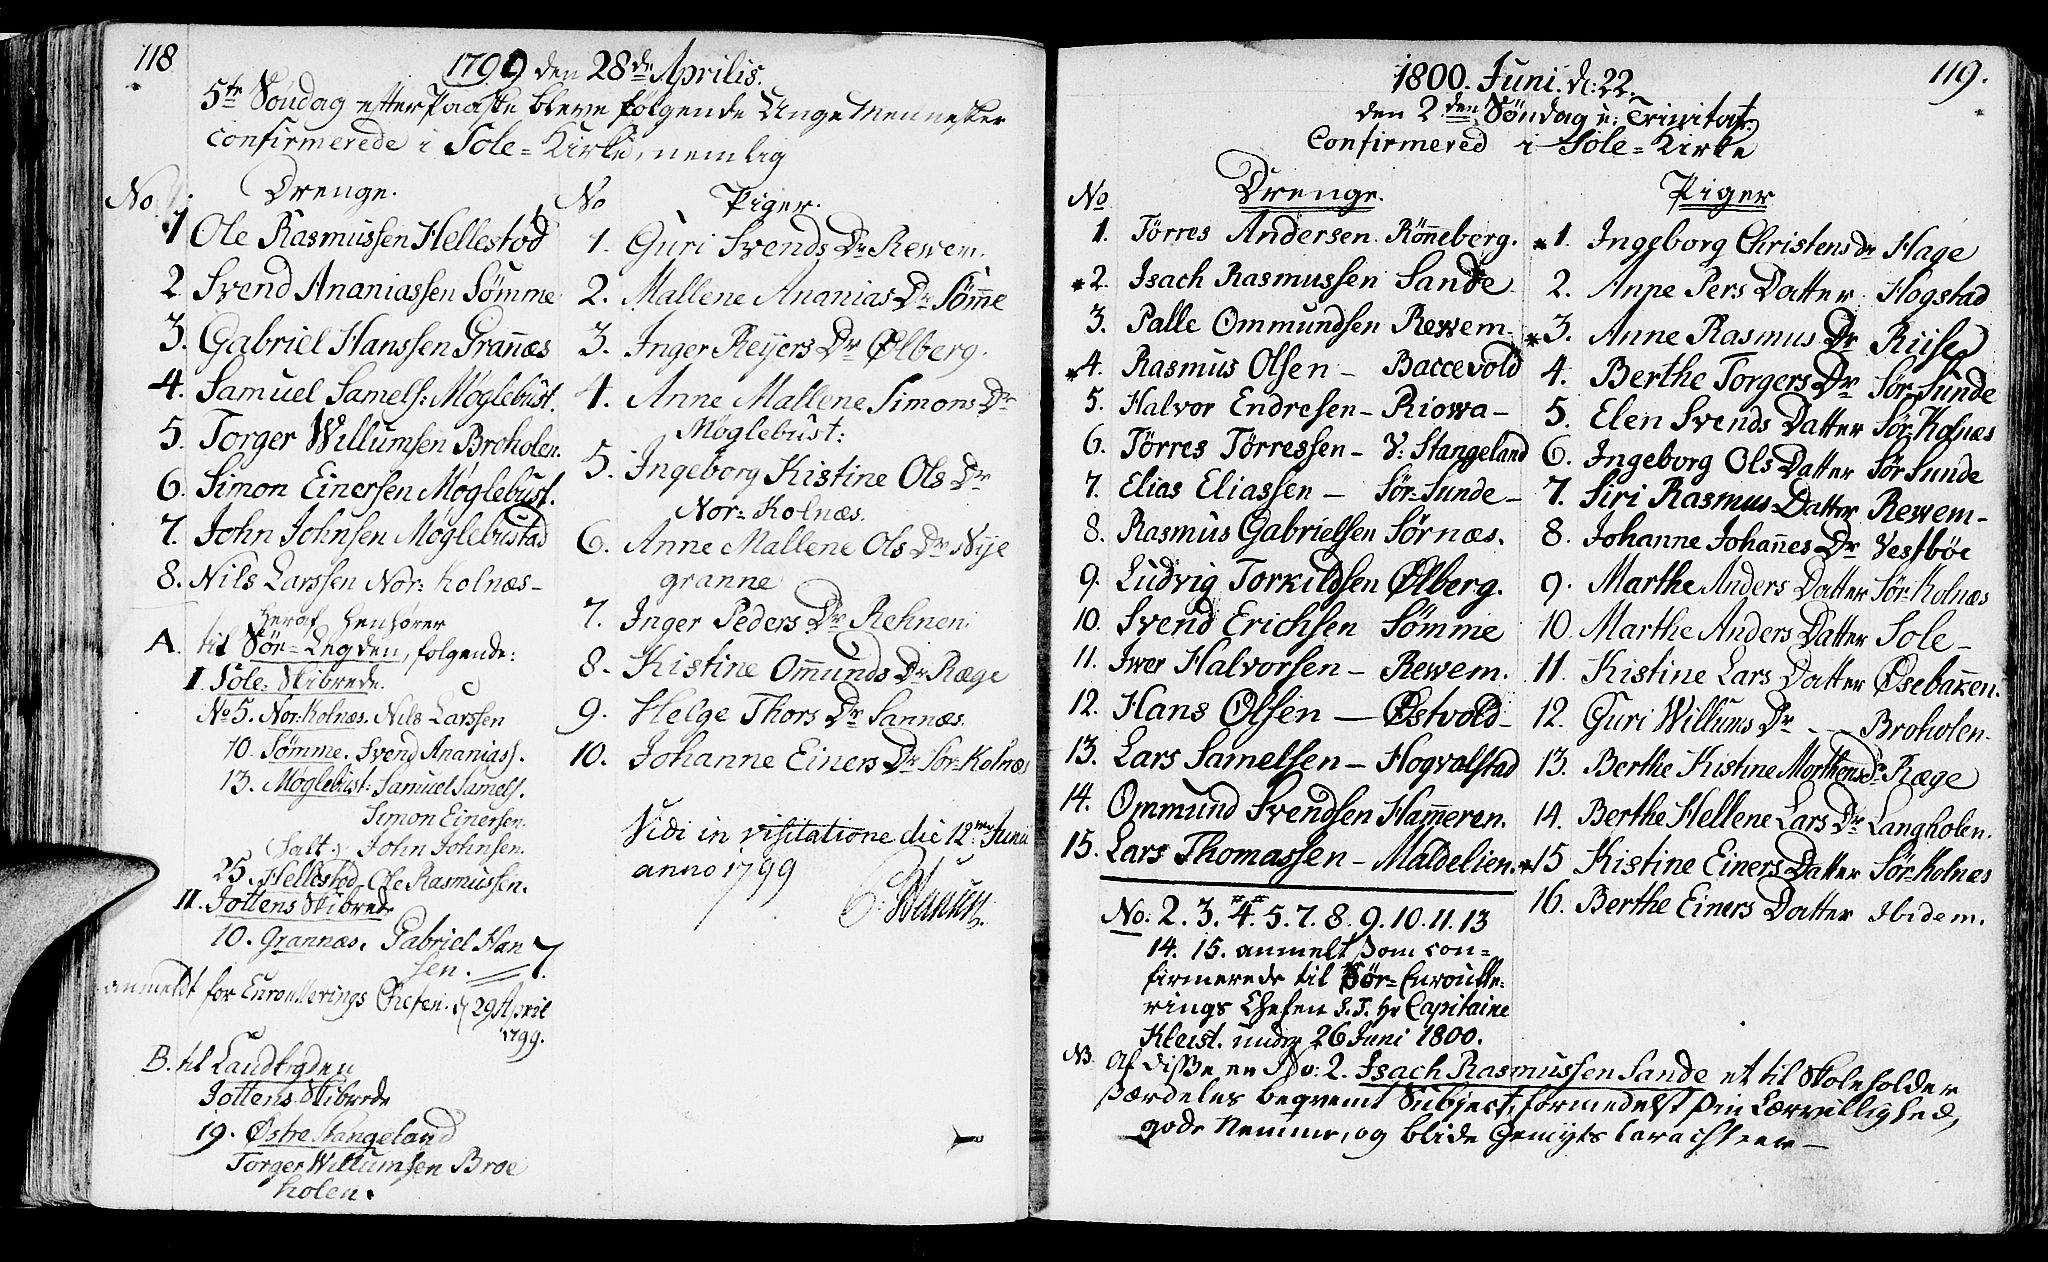 118
1799 den 28de Aprilis.
5te Søndag efter Paaske bleve følgende Unge Mennesker
confirmerede i Sole=Kirke, nemlig
No Drenge.
1 Ole Rasmussen Hellestød
2 Svend Ananiassen Sømme
3. Gabriel Hanssen Grañæs
4. Samuel Samels: Møglebust.
5. Torger Willumsen Broholen.
6. Simon Einersen Møglebust.
7. John Johnsen Møglebustad
8. Nils Larssen Nor: Kolnæs-
heraf henhører
A. til Sør=Legden, følgende:
I. Sole=Skibrede.
No 5. Nor:Kolnæs. Nils Larssen
10. Sømme. Svend Ananiass.
13. Møglebust: Samuel Samels.
Simon Einersen.
John Johnsen.
25. Hellestød. Ole Rasmussen.
II. Jottens Skibrede
10. Grannæs. Gabriel Han
sen. — 7.
anmeldt for Enroullerings Chefen. d 29 April
1799.
B. til Landlegden
Jottens Skibrede
19. Østre Stangeland
Torger Willumsen Broe
holen.
No Piger.
1. Guri Svends Dr Rewem.
2. Mallene Ananias Dr Søm̃e
3. Inger Reijers Dr Ølberg.
4. Anne Mallene Simons Dr
Møglebust:
5. Ingeborg Kistine Ols Dr
Nor=Kolnæs.
6. Anne Mallene Ols Dr Nije
granne
7. Inger Peders Dr Rehnen.
8. Kistine Om̃unds Dr Ræge
9. Helge Thors Dr Sannæs.
10. Johanne Einers Dr Sør=Kolnæs
Vidi in visitatione die 12me Junii
anno 1799
119.
1800. Juni. d: 22.
den 2den Søndag p: Trinitat.
Confirmered i Sole=Kirke
No Drenge.
1. Tørres Andersen. Rönneberg.
*2. Isach Rasmussen Sande
3. Palle Ommundsen Rewem-
*4. Rasmus Olsen - Baccevold
5. Halvor Endresen- Riowa-
6. Tørres Tørressen- V: Stangeland
7. Elias Eliassen - Sør=Sunde-
8. Rasmus Gabrielsen Sørnæs.
9. Ludvig Torkildsen Ølberg.
10. Svend Erichsen Sømme
11. Iwer Halvorsen- Rewem.
12. Hans Olsen - Østvold-
13. Lars Samelsen- Hogvalstad
14. Ommund Svendsen Ham̃eren.
15. Lars Thomassen- Maldelien.
No: 2. 3. 4. 5. 7. 8. 9. 10. 11. 13
14. 15. anmelt som con=
firmerede til Sør=Enroulle=
rings Chefen S. T. Hr Capitaine
Kleist. under 26 Juni 1800.
NB. Af disse er No: 2. Isach Rasmussen Sande et til Skoleholder
særdeles beqvemt Subject, formedelst sin Lærvillighed,
gode Nemme, og blide Gemyts Carachteer-
Piger
*1. Ingeborg Christensdr Hage
2. Anne Pers Datter Hogstad
*3. Anne Rasmus Dr Riise
4. Berthe Torgers Dr Sør=Sunde
5. Elen Svends Datter Sør=Kolnæs
6. Ingeborg Ols Datter Sør Sunde
7. Siri Rasmus Datter Rewem-
8. Johanne Johañes Dr Vestbøe
9. Marthe Anders Datter Sør=Kolnæs
10. Marthe Anders Datter Sole-
11. Kistine Lars Datter Øsebakken.
12. Guri Willums Dr - - Broholen-
13. Berthe Kistine Morthensdr Ræge
14. Berthe Hellene Lars Dr Langholen.
*15 Kistine Einers Datter Sør=Kolnæs
16. Berthe Einers Datter Ibidem.